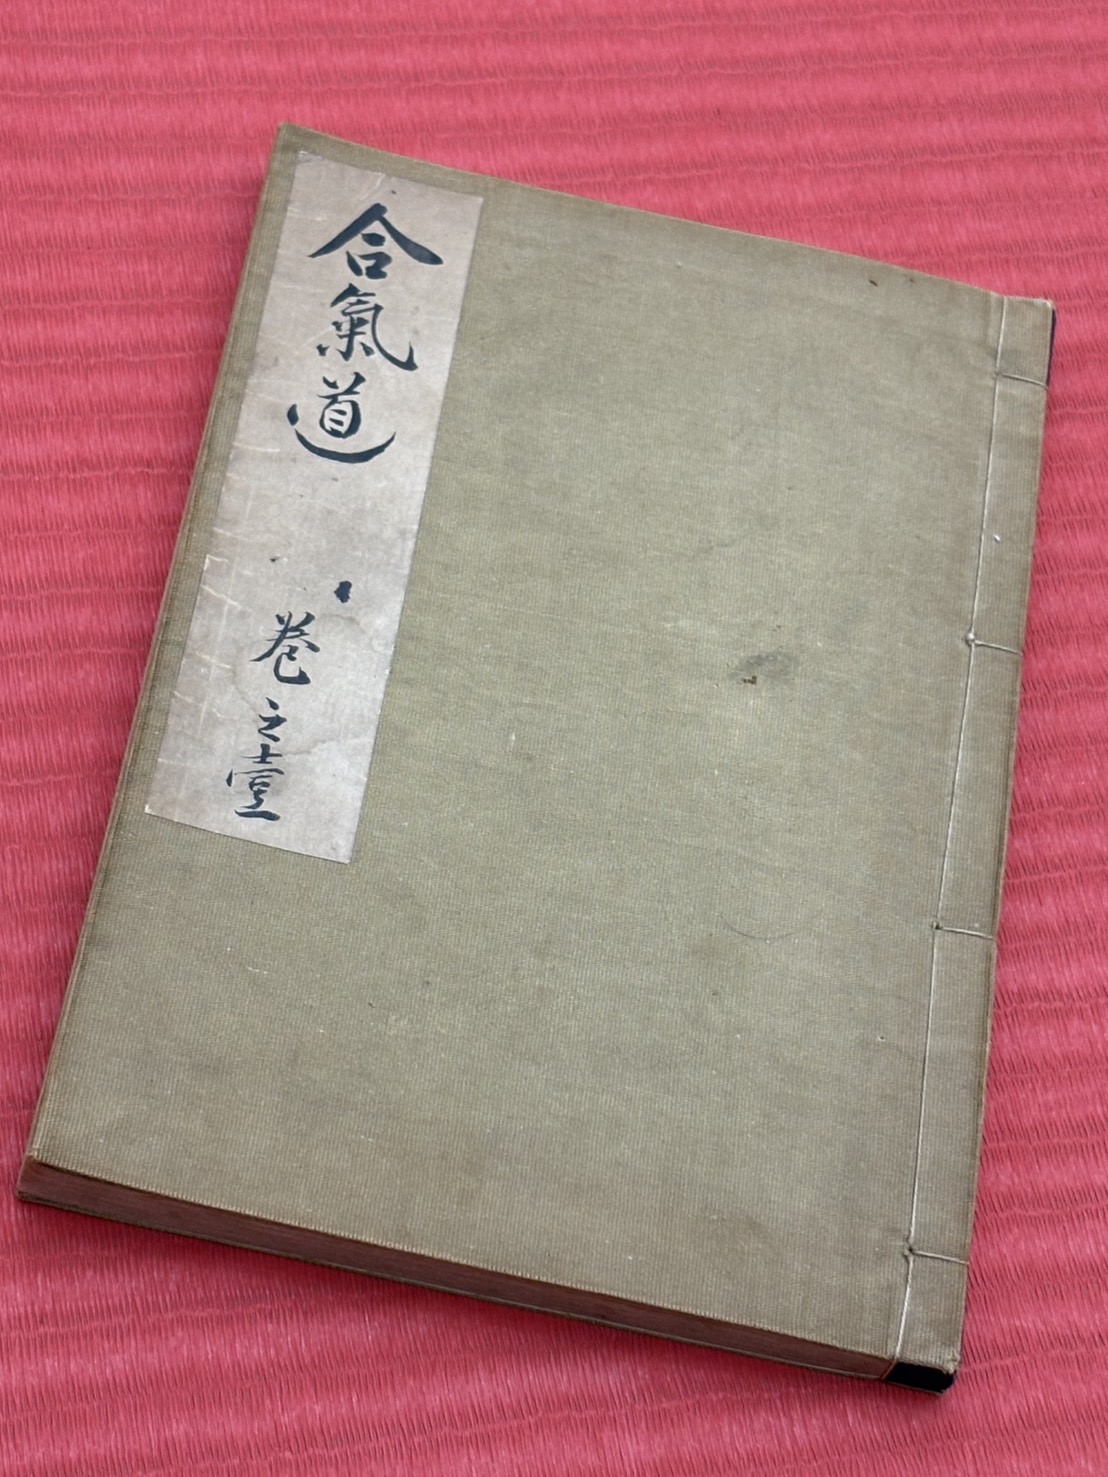 合氣道
巻之壹